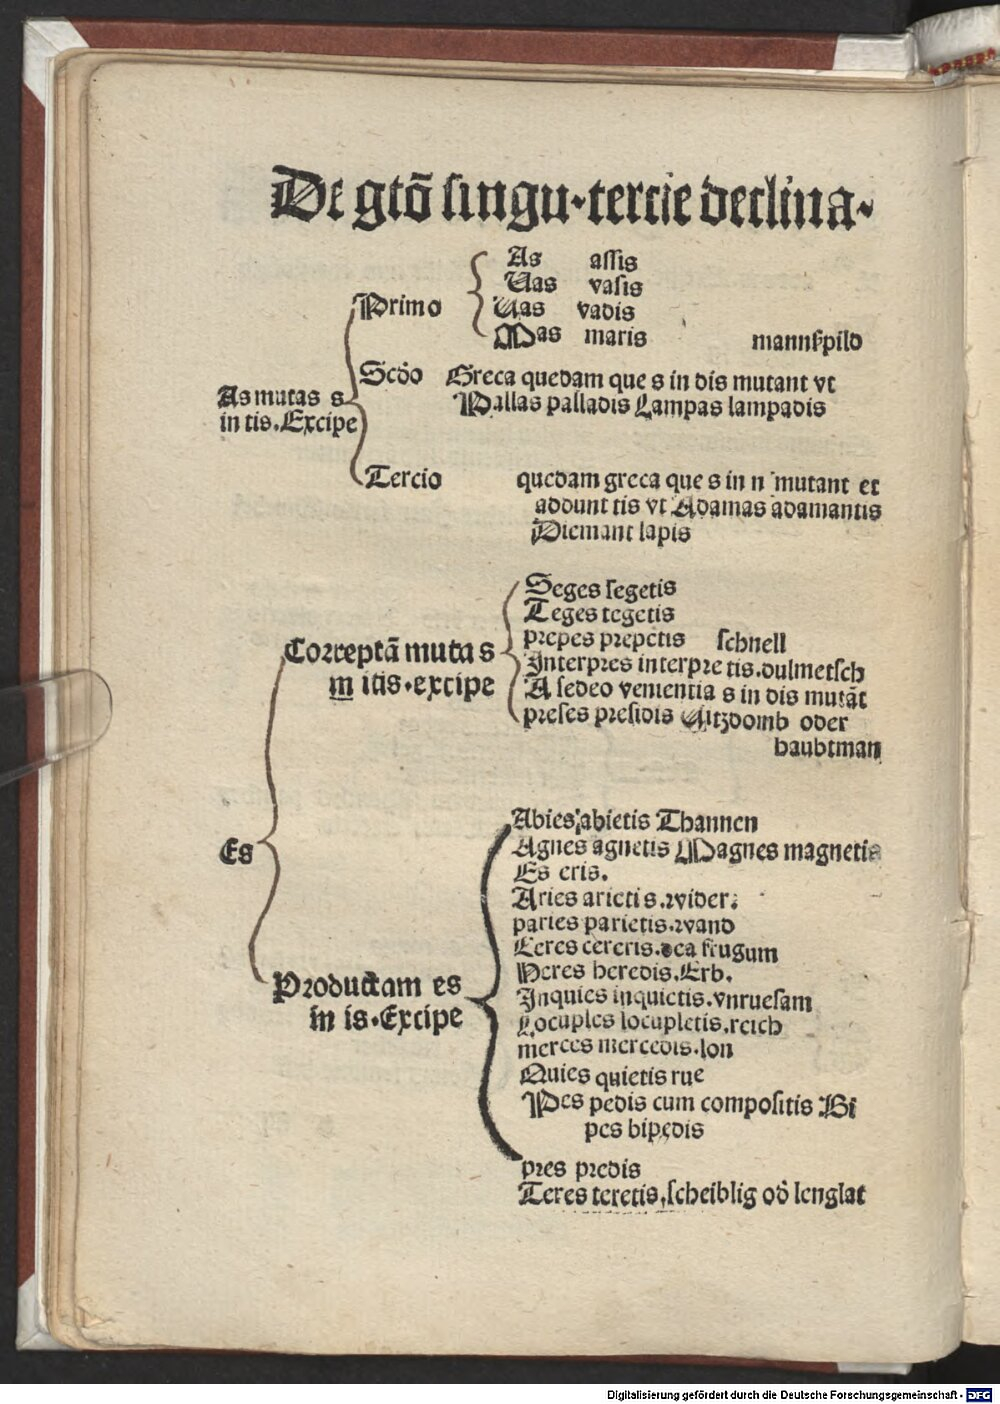 De gtō singu·tercie declina·
As assis
Uas vasis
Primo Uas vadis
Mas maris mannßpild
Scdo Greca quedam que s in dis mutant vt
As mutas s Pallas palladis Lampas lampadis
in tis.Excipe
Tercio quedam greca que s in n mutant et
addunt tis vt Adamas adamantis
Diemant lapis
Seges segetis
Teges tegetis
prepes prepetis schnell
Correptā muta s Interpres interpretis.dulmetsch
in itis.excipe A sedeo venientia s in dis mutāt
preses presidis Vitzdomb oder
haubtman
Abies abietis Thannen
Es Agnes agnetis Magnes magnetis
Es eris.
Aries arietis.wider.
paries parietis.wand
Ceres cereris.dea frugum
Productam es Heres heredis.Erb.
in is.Excipe Inquies inquietis.vnruesam
Locuples locupletis.reich
merces mercedis.lon
Quies quietis rue
Pes pedis cum compositis Bi
pes bipedis
pres predis
Teres teretis,scheiblig od lenglat
Digitalisierung gefördert durch die Deutsche Forschungsgemeinschaft - DFG